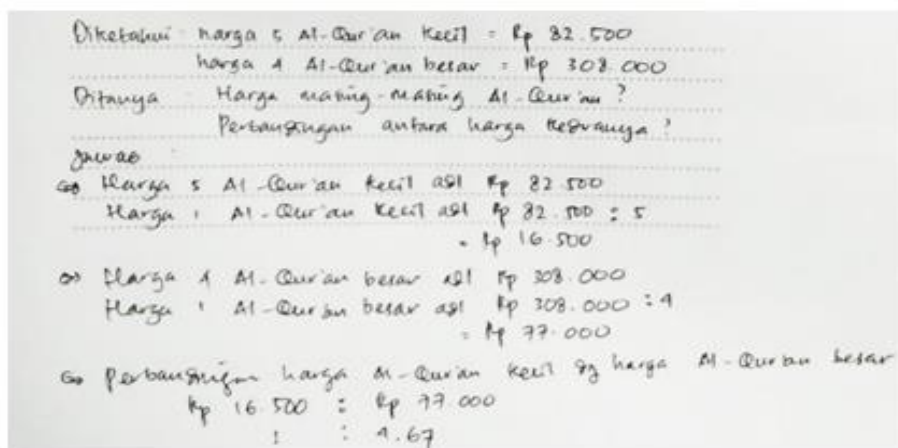 Diketahui harga 5 Al-Qur'an kecil = Rp 82.500
harga 4 Al-Qur'an besar = Rp 308.000
Ditanya Harga masing-masing Al-Qur'an ?
Perbandingan antara harga keduanya ?
Jawab
Harga 5 Al-Qur'an kecil adl Rp 82.500
Harga 1 Al-Qur'an kecil adl Rp 82.500 : 5
= Rp 16.500
Harga 4 Al-Qur'an besar adl Rp 308.000
Harga 1 Al-Qur'an besar adl Rp 308.000 : 4
= Rp 77.000
Perbandingan harga Al-Qur'an kecil dg harga Al-Qur'an besar
Rp 16.500 : Rp 77.000
1 : 4.67